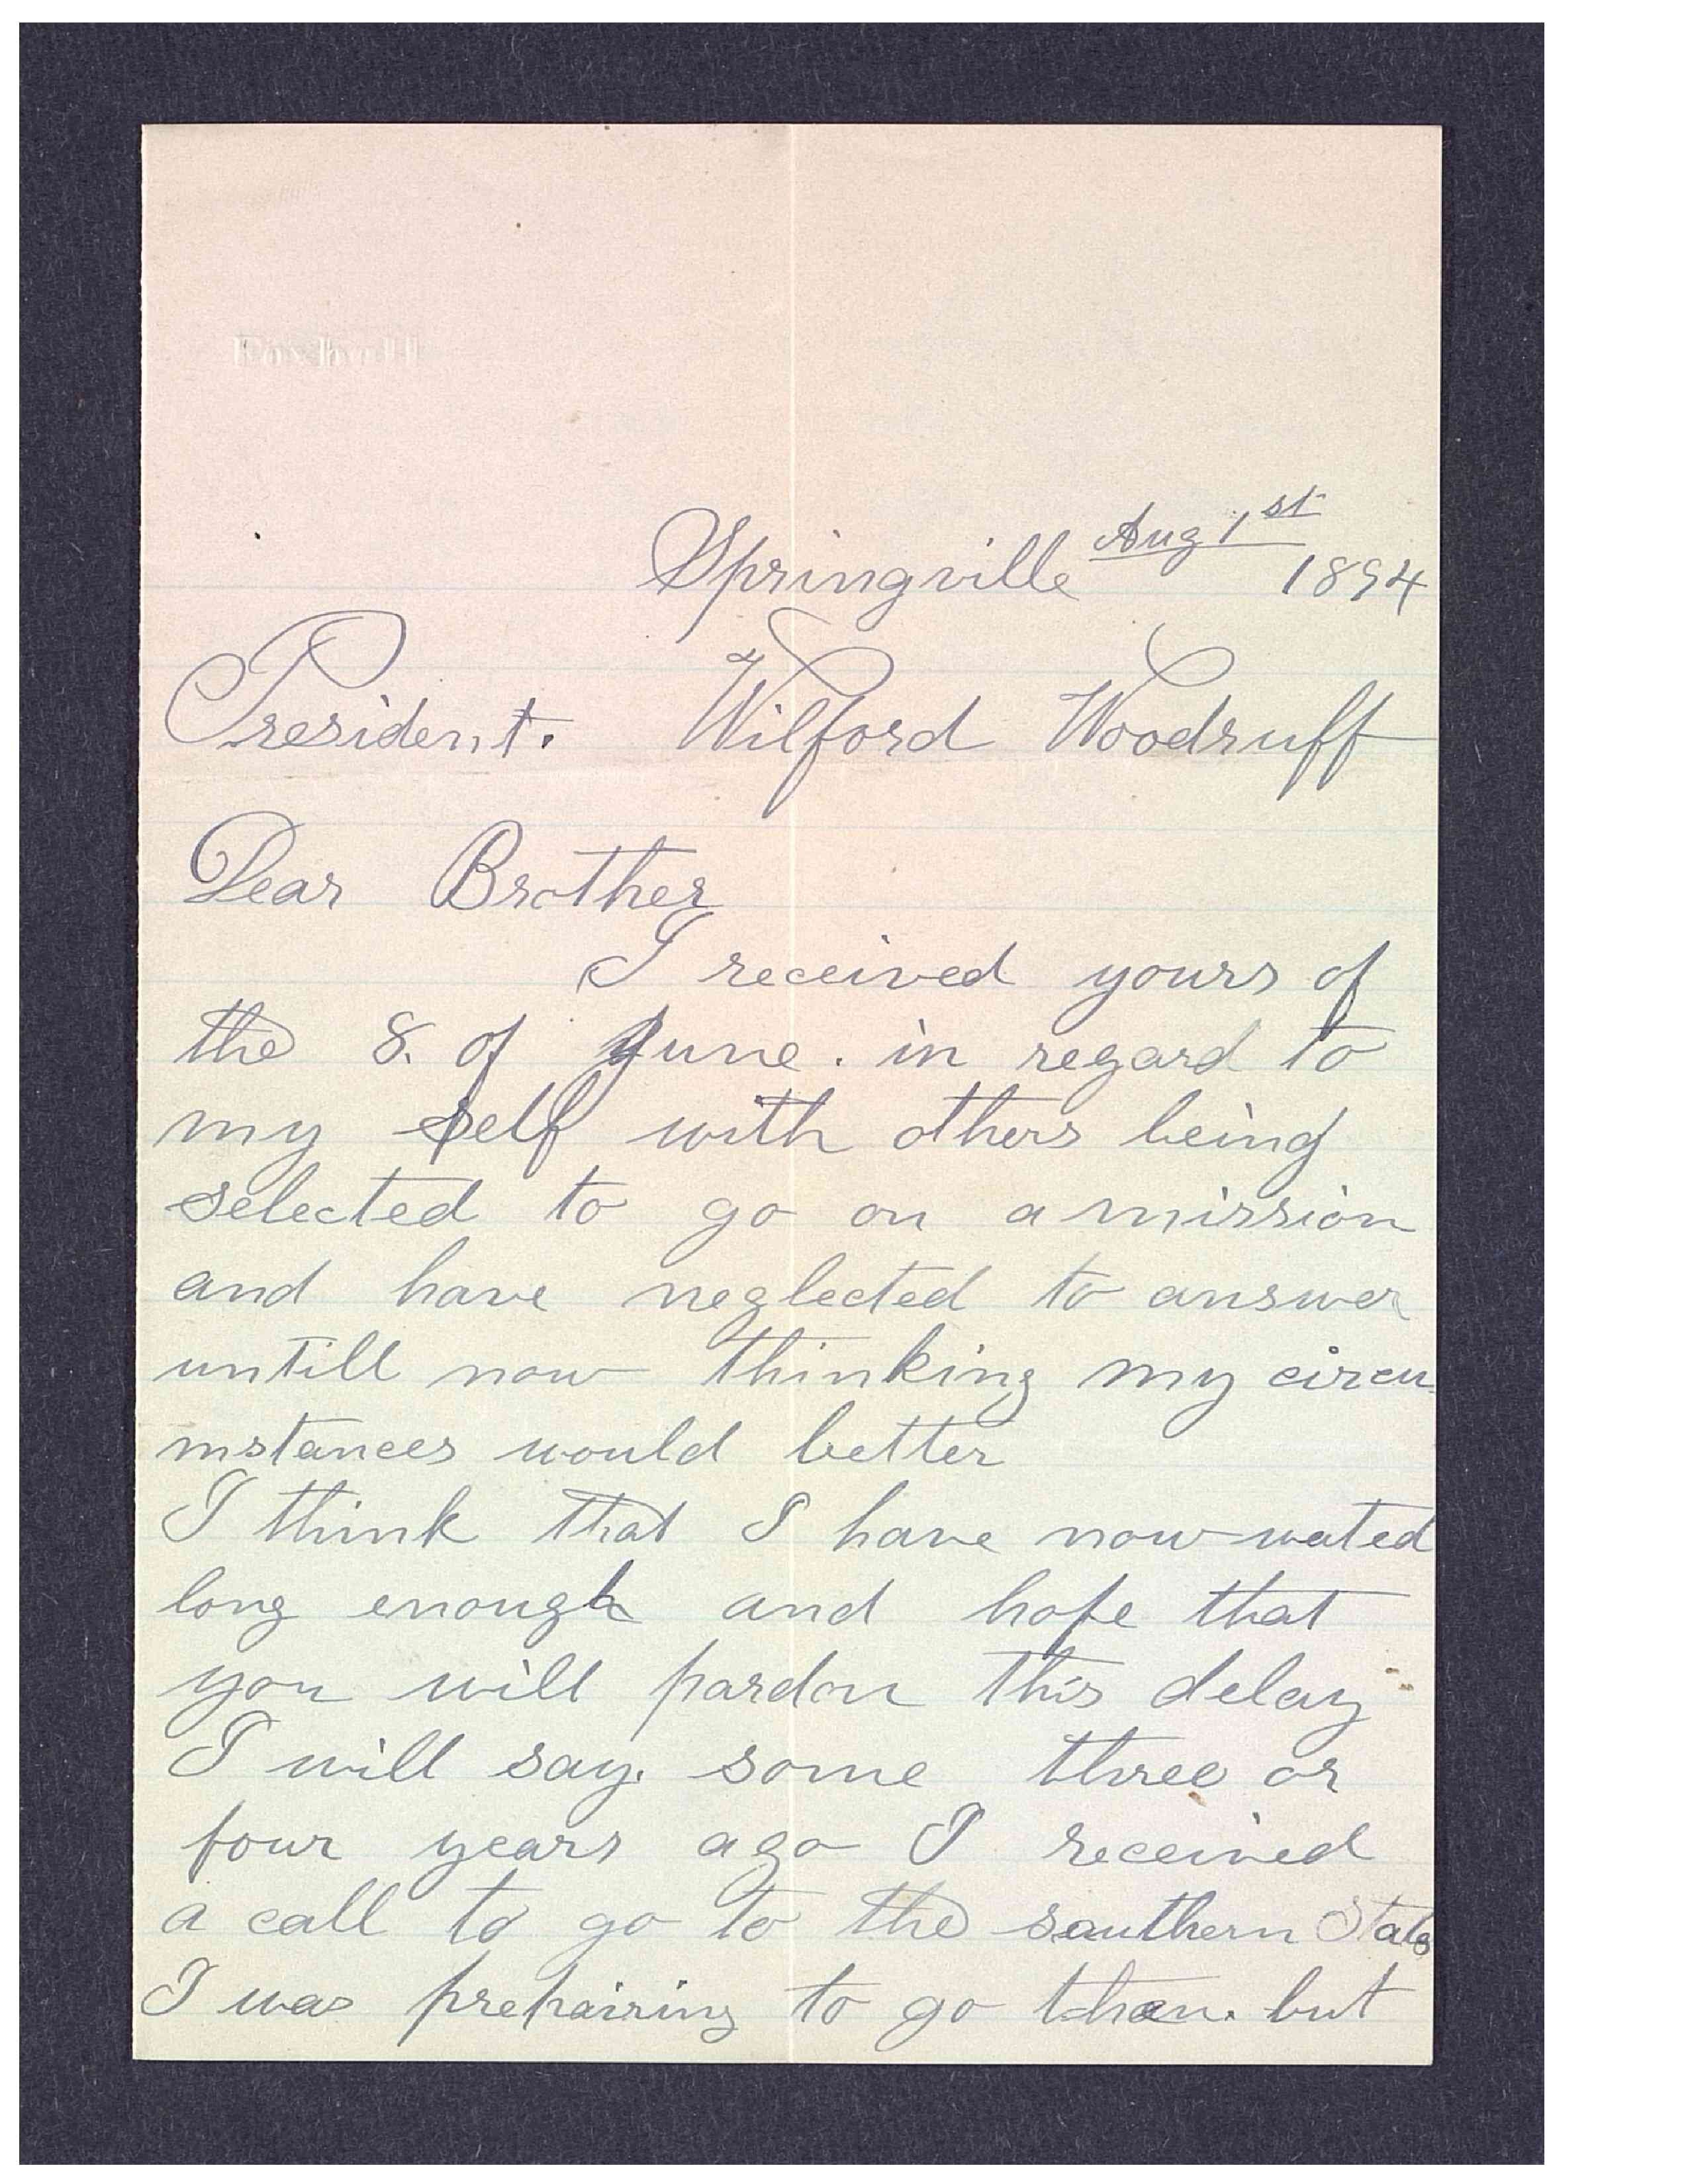 Springville Aug 1st 1894
President. Wilford Woodruff
Dear Brother
I received yours of
the 8. of June. in regard to
my self with others being
selected to go on a mission
and have neglected to answer
untill now thinking my circu
mstances would better
I think that I have now wated
long enough and hope that
you will pardon this delay
I will say. some three or
four years ago I received
a call to go to the southern States
I was prepairing to go then. but